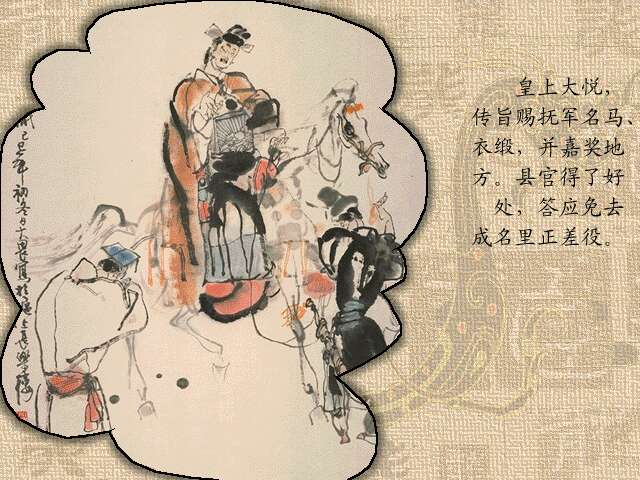 皇上大悦，
传旨赐抚军名马、
衣缎，并嘉奖地
方。县官得了好
处，答应免去
成名里正差役。
岁己巳年初冬月大